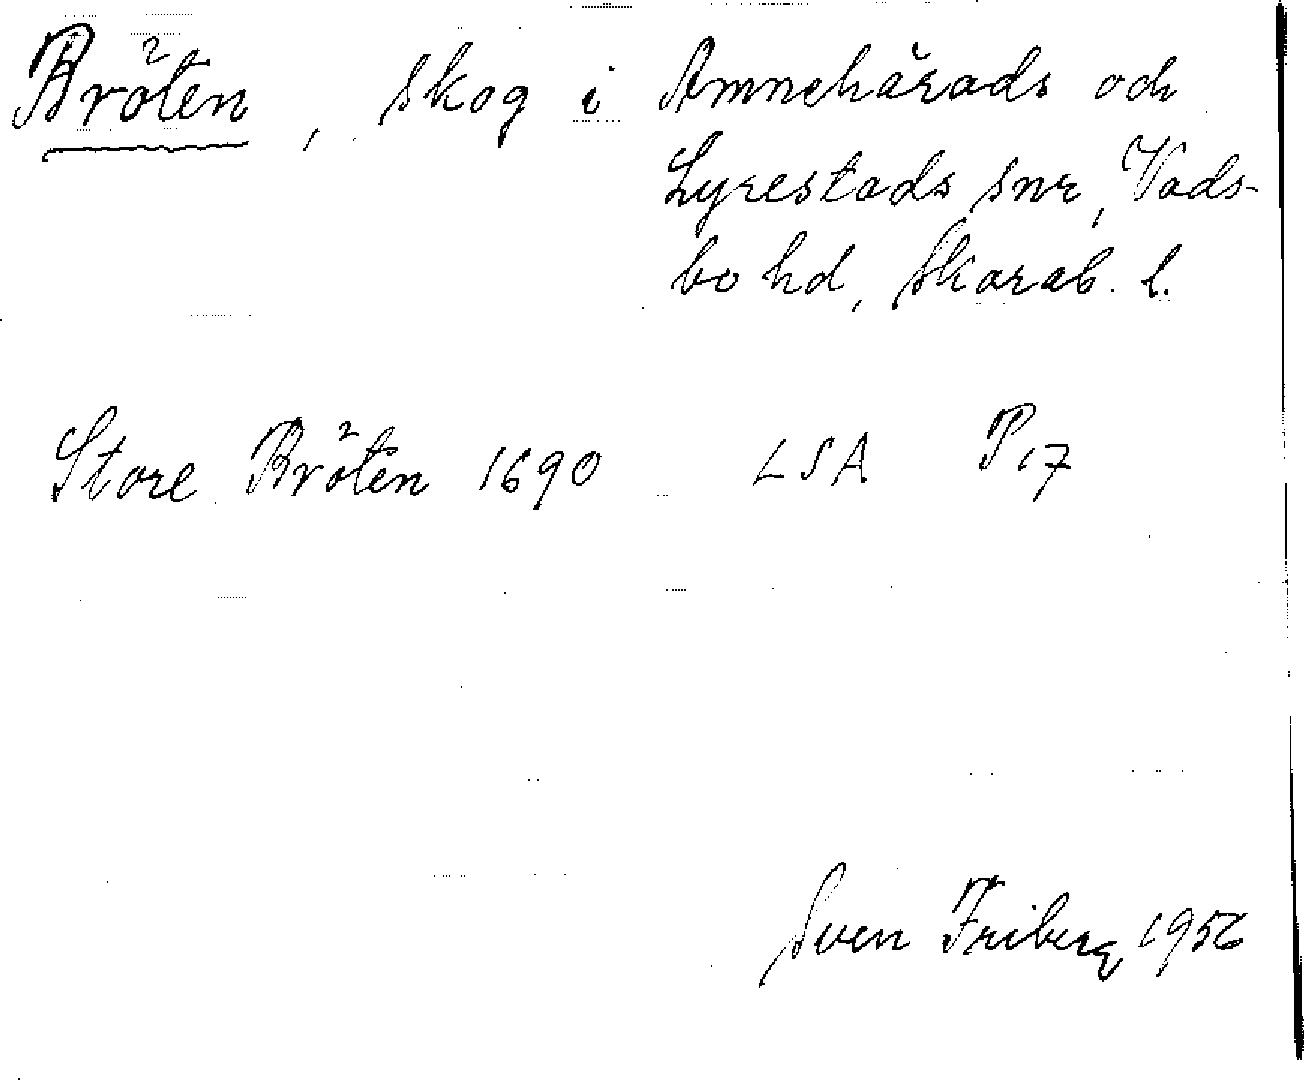 Bröten, skog i Amnehärads och
Lyrestads snr, Vads-
bo hd, Skarab. l.
Store Bröten 1690 LSA P17
Sven Friberg 1956